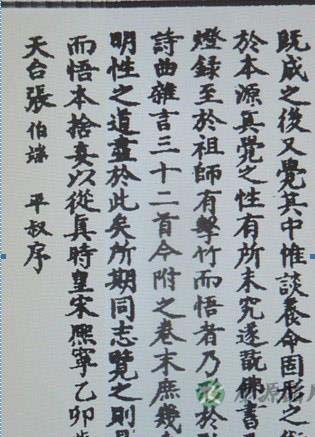 既成之後又覺其中惟談養命固形之術
於本源真覺之性有所未究遂翫佛書
燈錄至於祖師有擊竹而悟者乃形於
詩曲雜言三十二首今附之卷末庶幾
明性之道盡於此矣所期同志覽之則見
而悟本捨妄以從真時皇宋熙寧乙卯歲
天台張伯端 平叔序